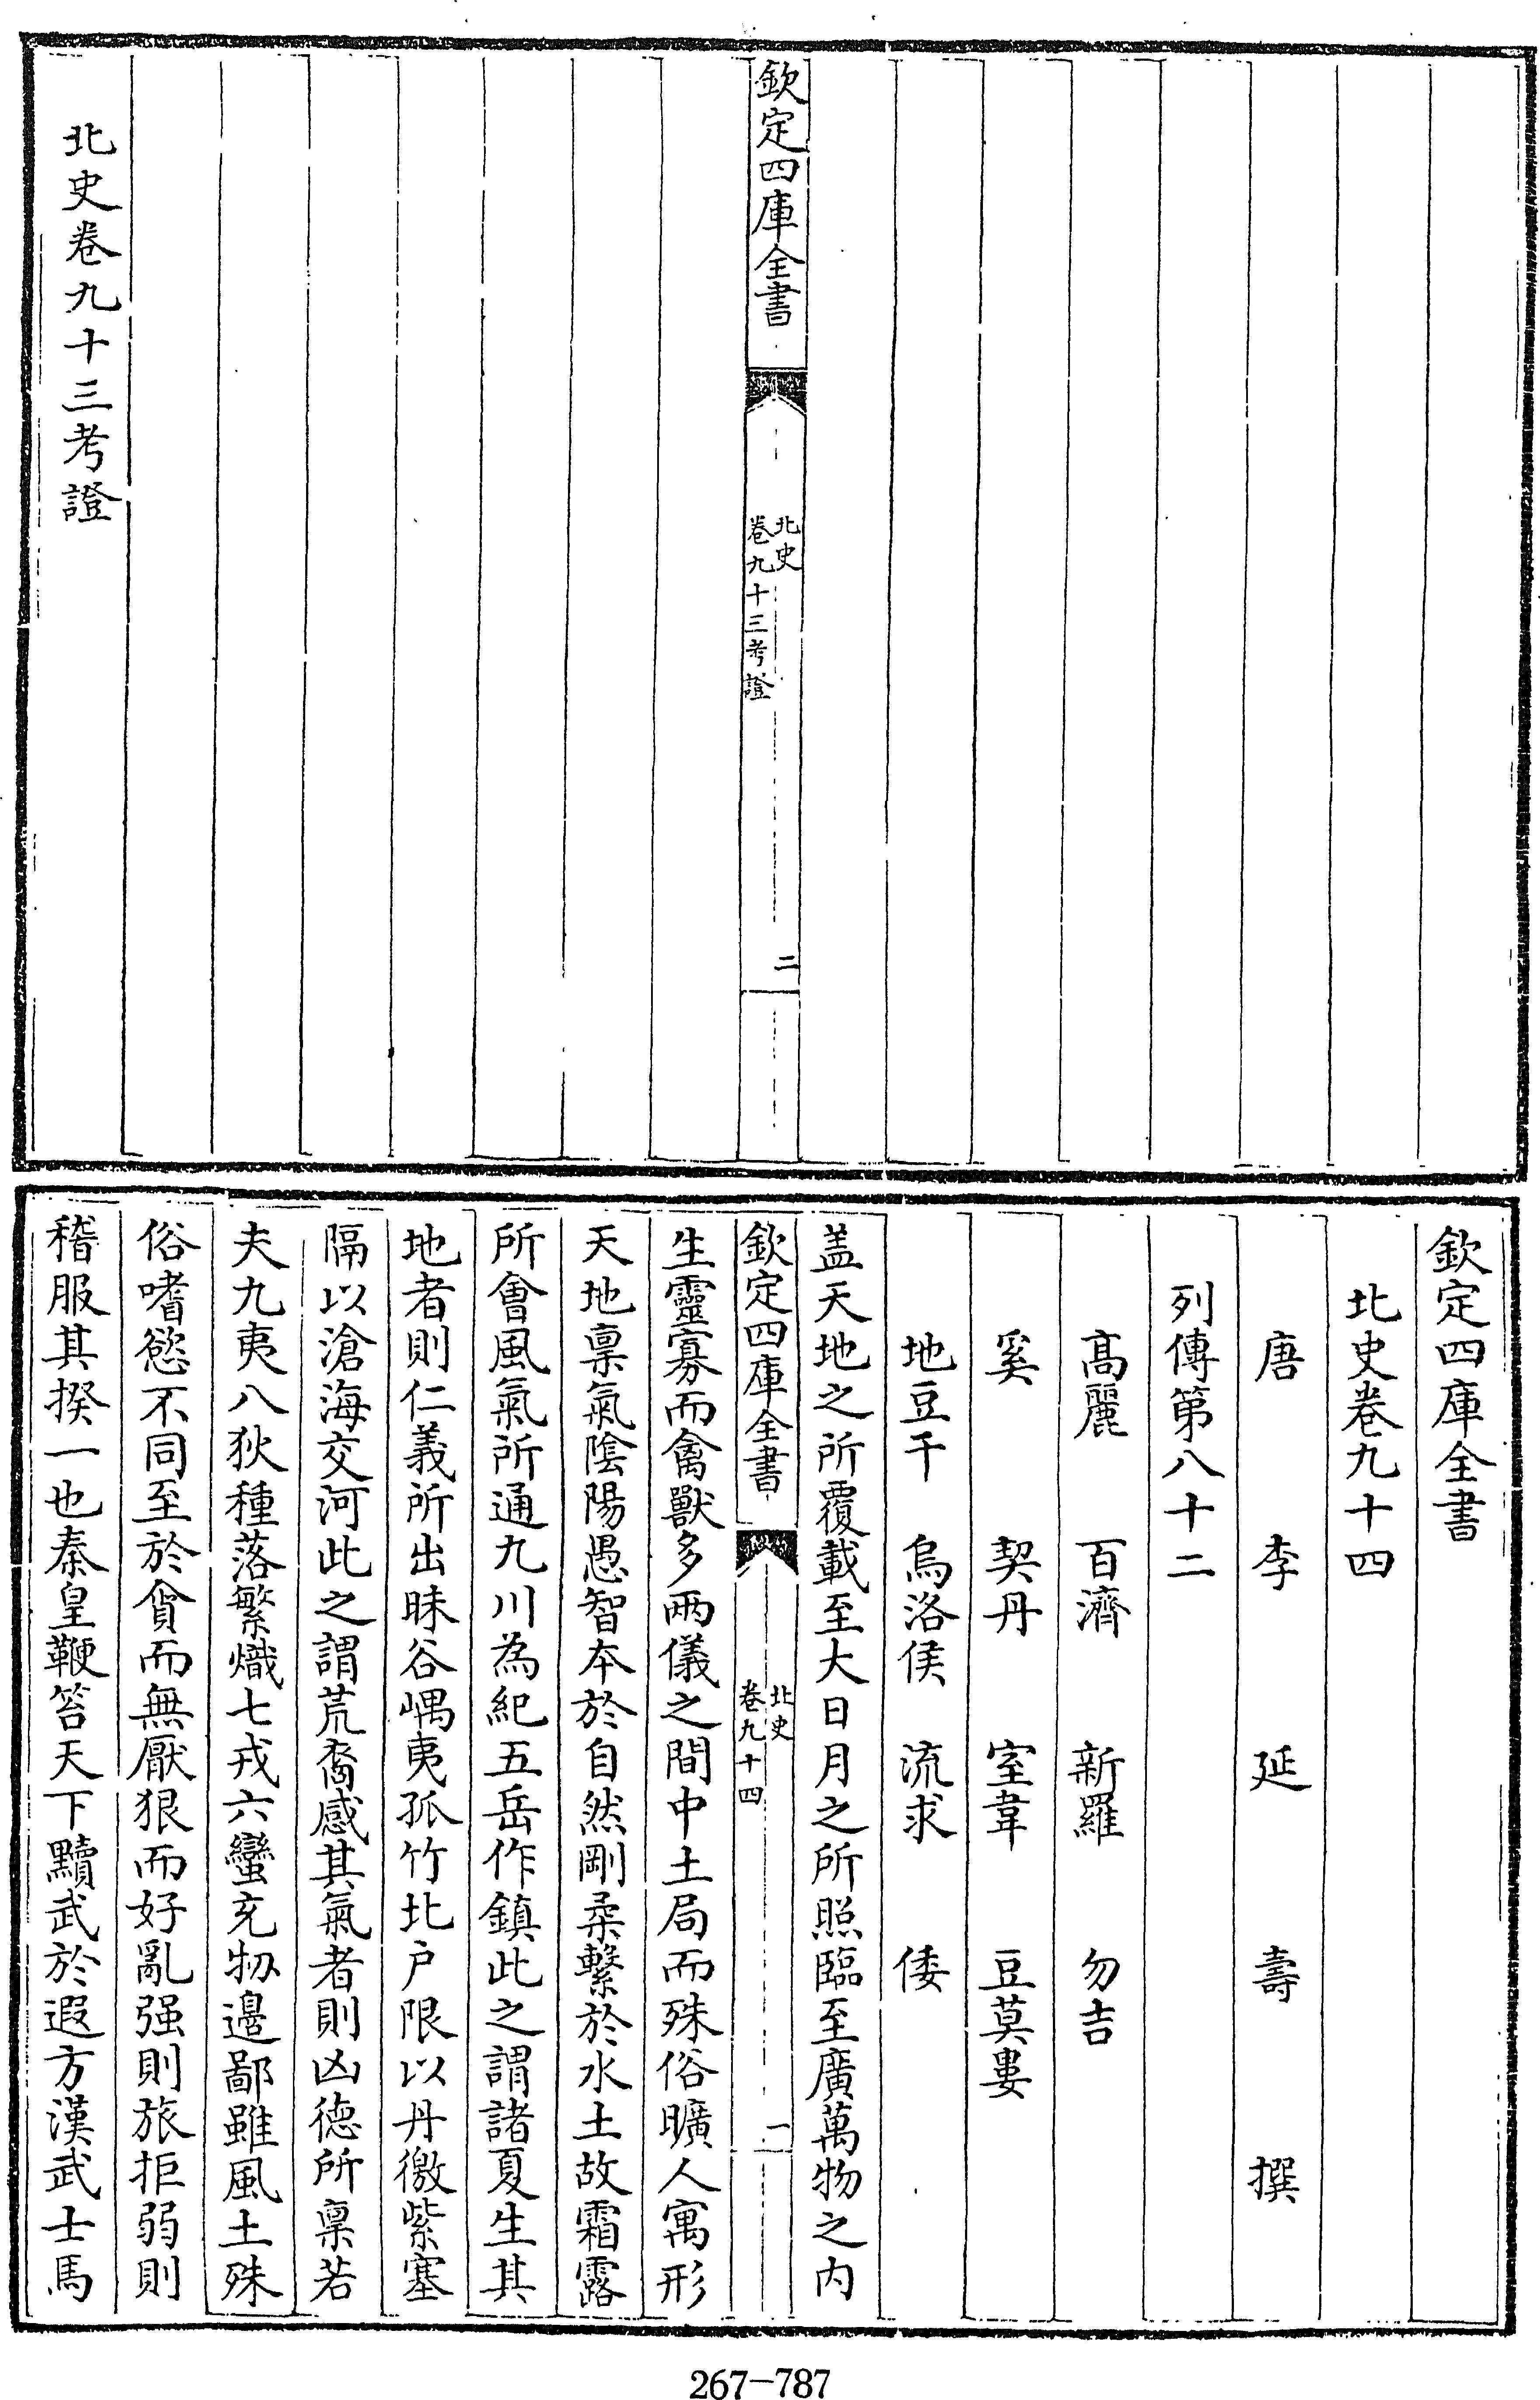 欽定四庫全書
北史
卷九十三考證
二
北史卷九十三考證
欽定四庫全書
北史卷九十四
唐 李 延 壽 撰
列傳第八十二
髙麗 百濟 新羅 勿吉
奚 契丹 室韋 豆莫婁
地豆干 烏洛侯 流求 倭
盖天地之所覆載至大日月之所照臨至廣萬物之内
欽定四庫全書
北史
卷九十四
一
生靈寡而禽獸多兩儀之間中土局而殊俗曠人寓形
天地禀氣陰陽愚智本於自然剛柔繫於水土故霜露
所會風氣所通九川為紀五岳作鎮此之謂諸夏生其
地者則仁義所出昧谷嵎夷孤竹北户限以丹徼紫塞
隔以滄海交河此之謂荒裔感其氣者則凶德所禀若
夫九夷八狄種落繁熾七戎六蠻充牣邊鄙雖風土殊
俗嗜慾不同至於貪而無厭狠而好亂强則旅拒弱則
稽服其揆一也秦皇鞭笞天下黷武於遐方漢武士馬
267-787